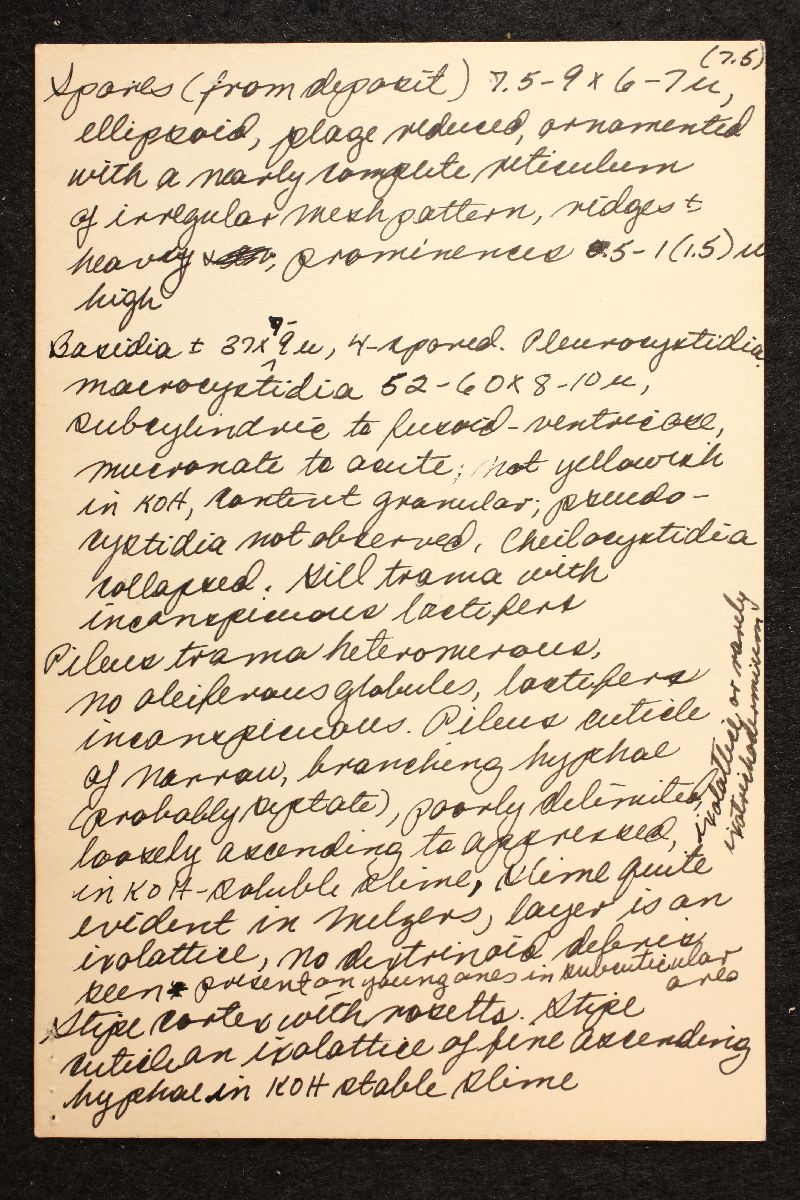 (7.5)
Spores (from deposit) 7.5-9 x 6-7 u,
ellipsoid, plage reduced, ornamented
with a nearly complete reticulum
of irregular mesh pattern, ridges ±
heavy, prominences 0.5-1(1.5) u
high
7-
Basidia ± 37x 9 u, 4-spored. Pleurocystidia
macrocystidia 52-60 x 8-10 u,
subcylindric to fusoid-ventricose,
mucronate to acute; not yellowish
in KOH, content granular; pseudo-
cystidia not observed. Cheilocystidia
collapsed. Gill trama with
inconspicuous lactifers
Pileus trama heteromerous,
no oleiferous globules, lactifers
inconspicuous. Pileus cuticle
of narrow, branching hyphae
(probably septate), poorly delimited
loosely ascending to appressed,
in KOH-soluble slime, slime quite
evident in Melzers, layer is an
ixolattice, no dextrinoid debris
seen * present on young ones in subcuticular
area
Stipe cortex with rosetts. Stipe
cuticle an ixolattice of fine ascending
hyphae in KOH stable slime
ixolattice or rarely
ixotrichodermium